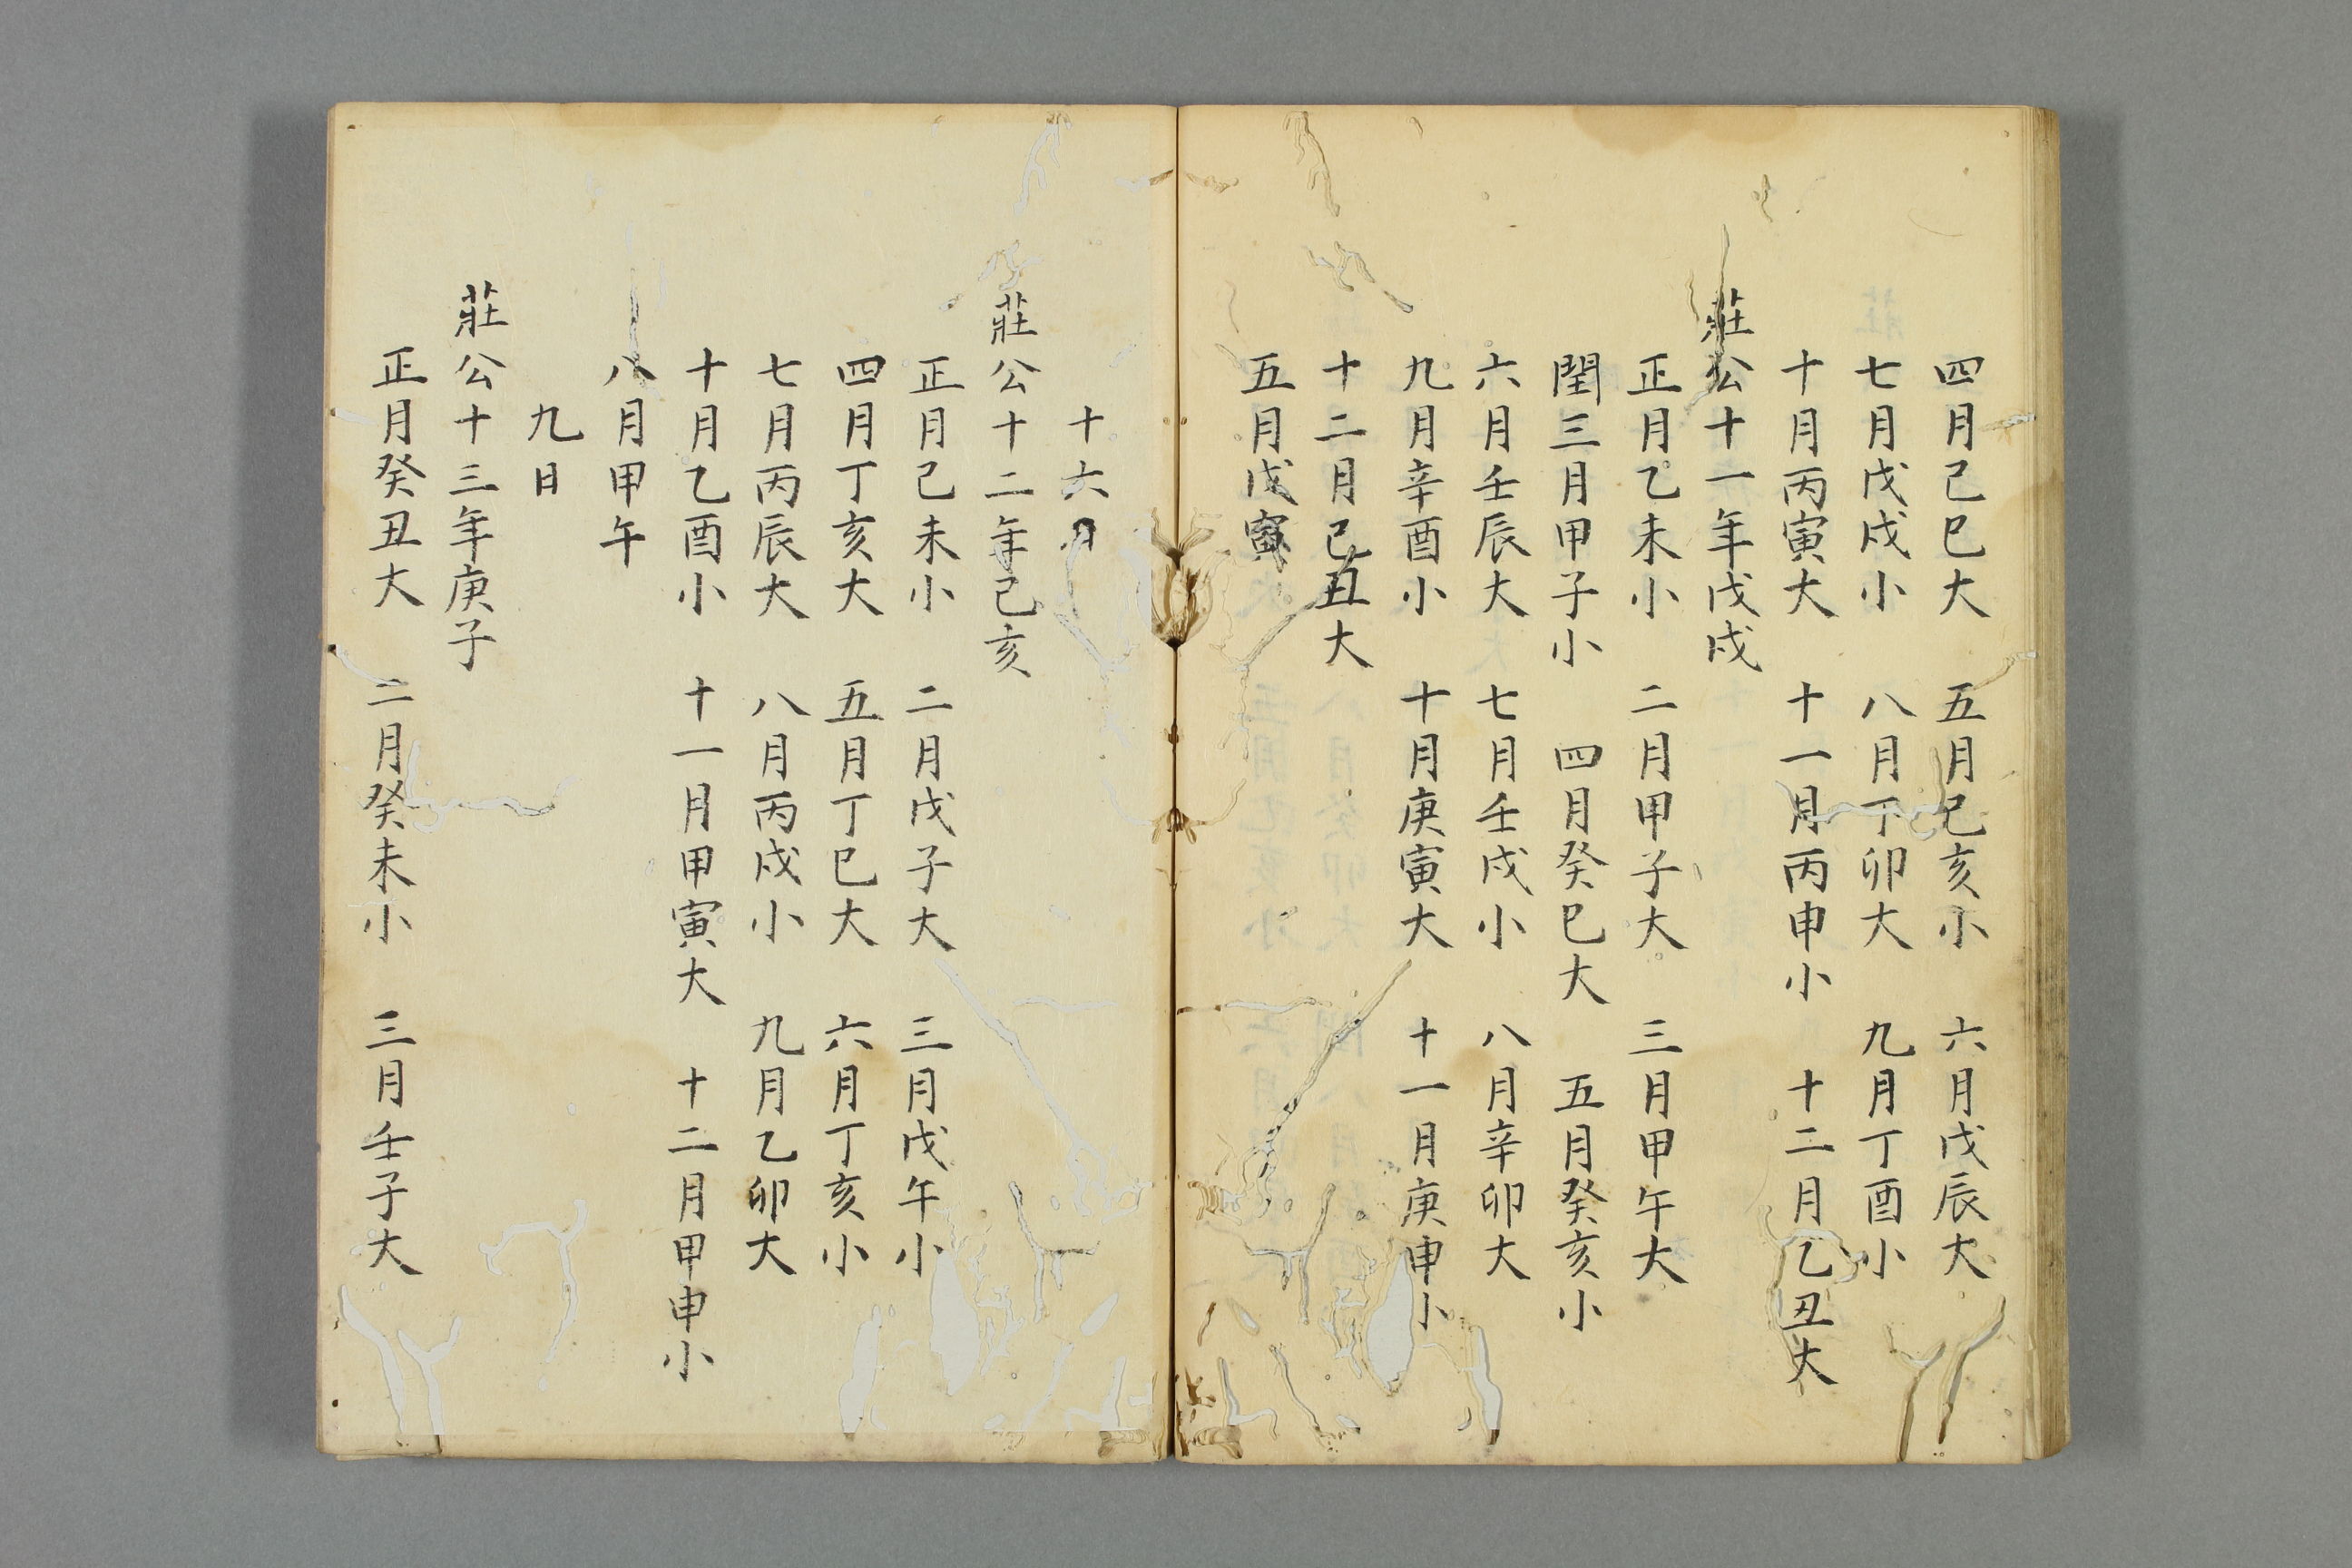 四月己巳大　五月己亥小　六月戊辰大
七月戊戌小　八月丁卯大　九月丁酉小
十月丙寅大　十一月丙申小　十二月乙丑大
莊公十一年戊戌
正月乙未小　二月甲子大　三月甲午大
閏三月甲子小　四月癸巳大　五月癸亥小
六月壬辰大　七月壬戌小　八月辛卯大
九月辛酉小　十月庚寅大　十一月庚申小
十二月己丑大
五月戊寅
十六日
莊公十二年己亥
正月己未小　二月戊子大　三月戊午小
四月丁亥大　五月丁巳大　六月丁亥小
七月丙辰大　八月丙戌小　九月乙卯大
十月乙酉小　十一月甲寅大　十二月甲申小
八月甲午
九日
莊公十三年庚子
正月癸丑大　二月癸未小　三月壬子大